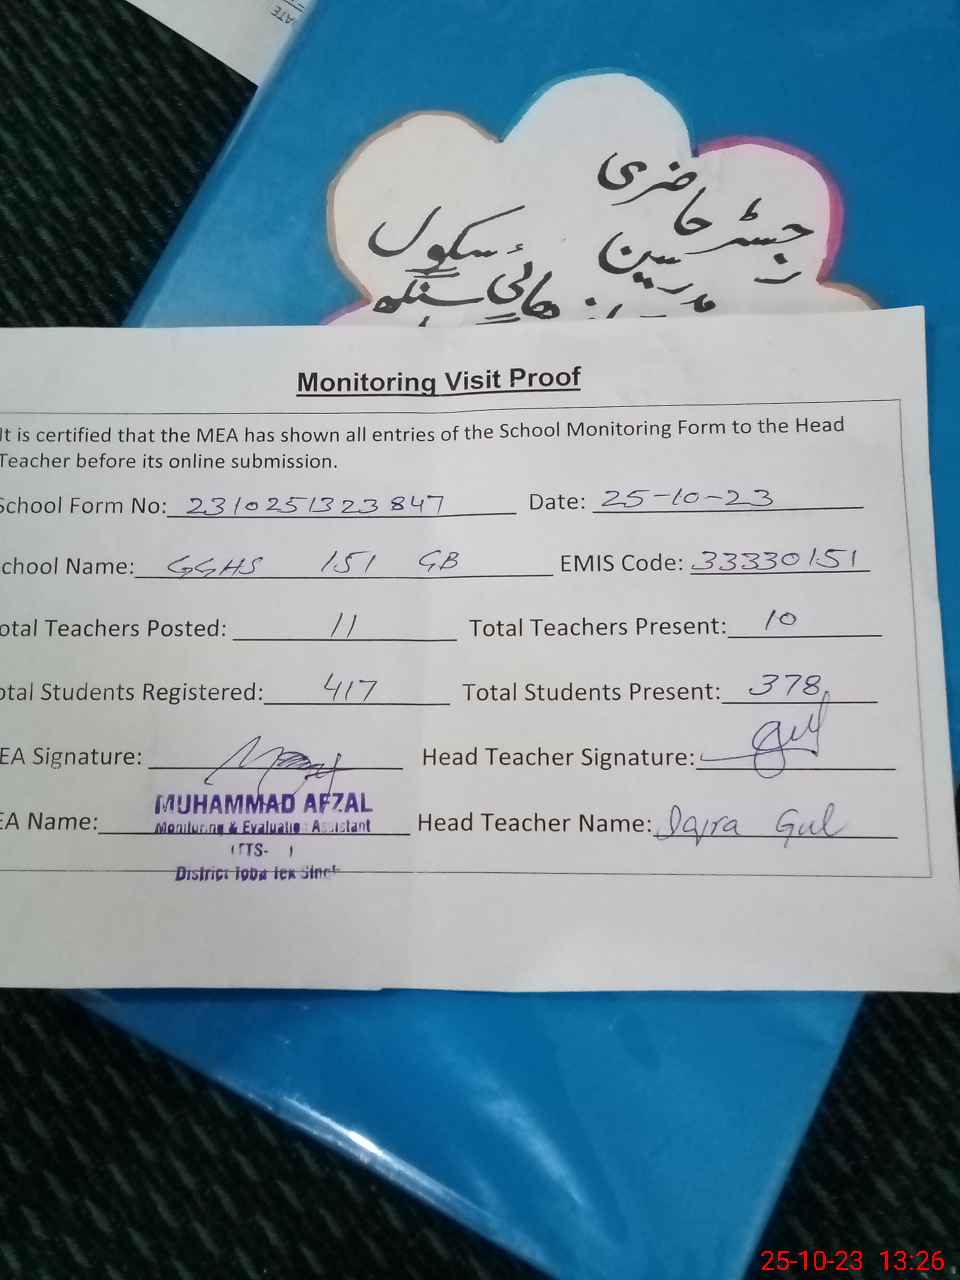 ATE
رجسٹر حاضری
مدرسین
ہائی سکول
سنگھ
Monitoring Visit Proof
It is certified that the MEA has shown all entries of the School Monitoring Form to the Head
Teacher before its online submission.
School Form No: 2310251323847 Date: 25-10-23
chool Name: GGHS 151 GB EMIS Code: 33330151
otal Teachers Posted: 11 Total Teachers Present: 10
otal Students Registered: 417 Total Students Present: 378
EA Signature: Head Teacher Signature: gul
MUHAMMAD AFZAL
EA Name: Monitoring & Evaluation Assistant Head Teacher Name: Iqra Gul
District Toba Tek Singh
25-10-23 13:26